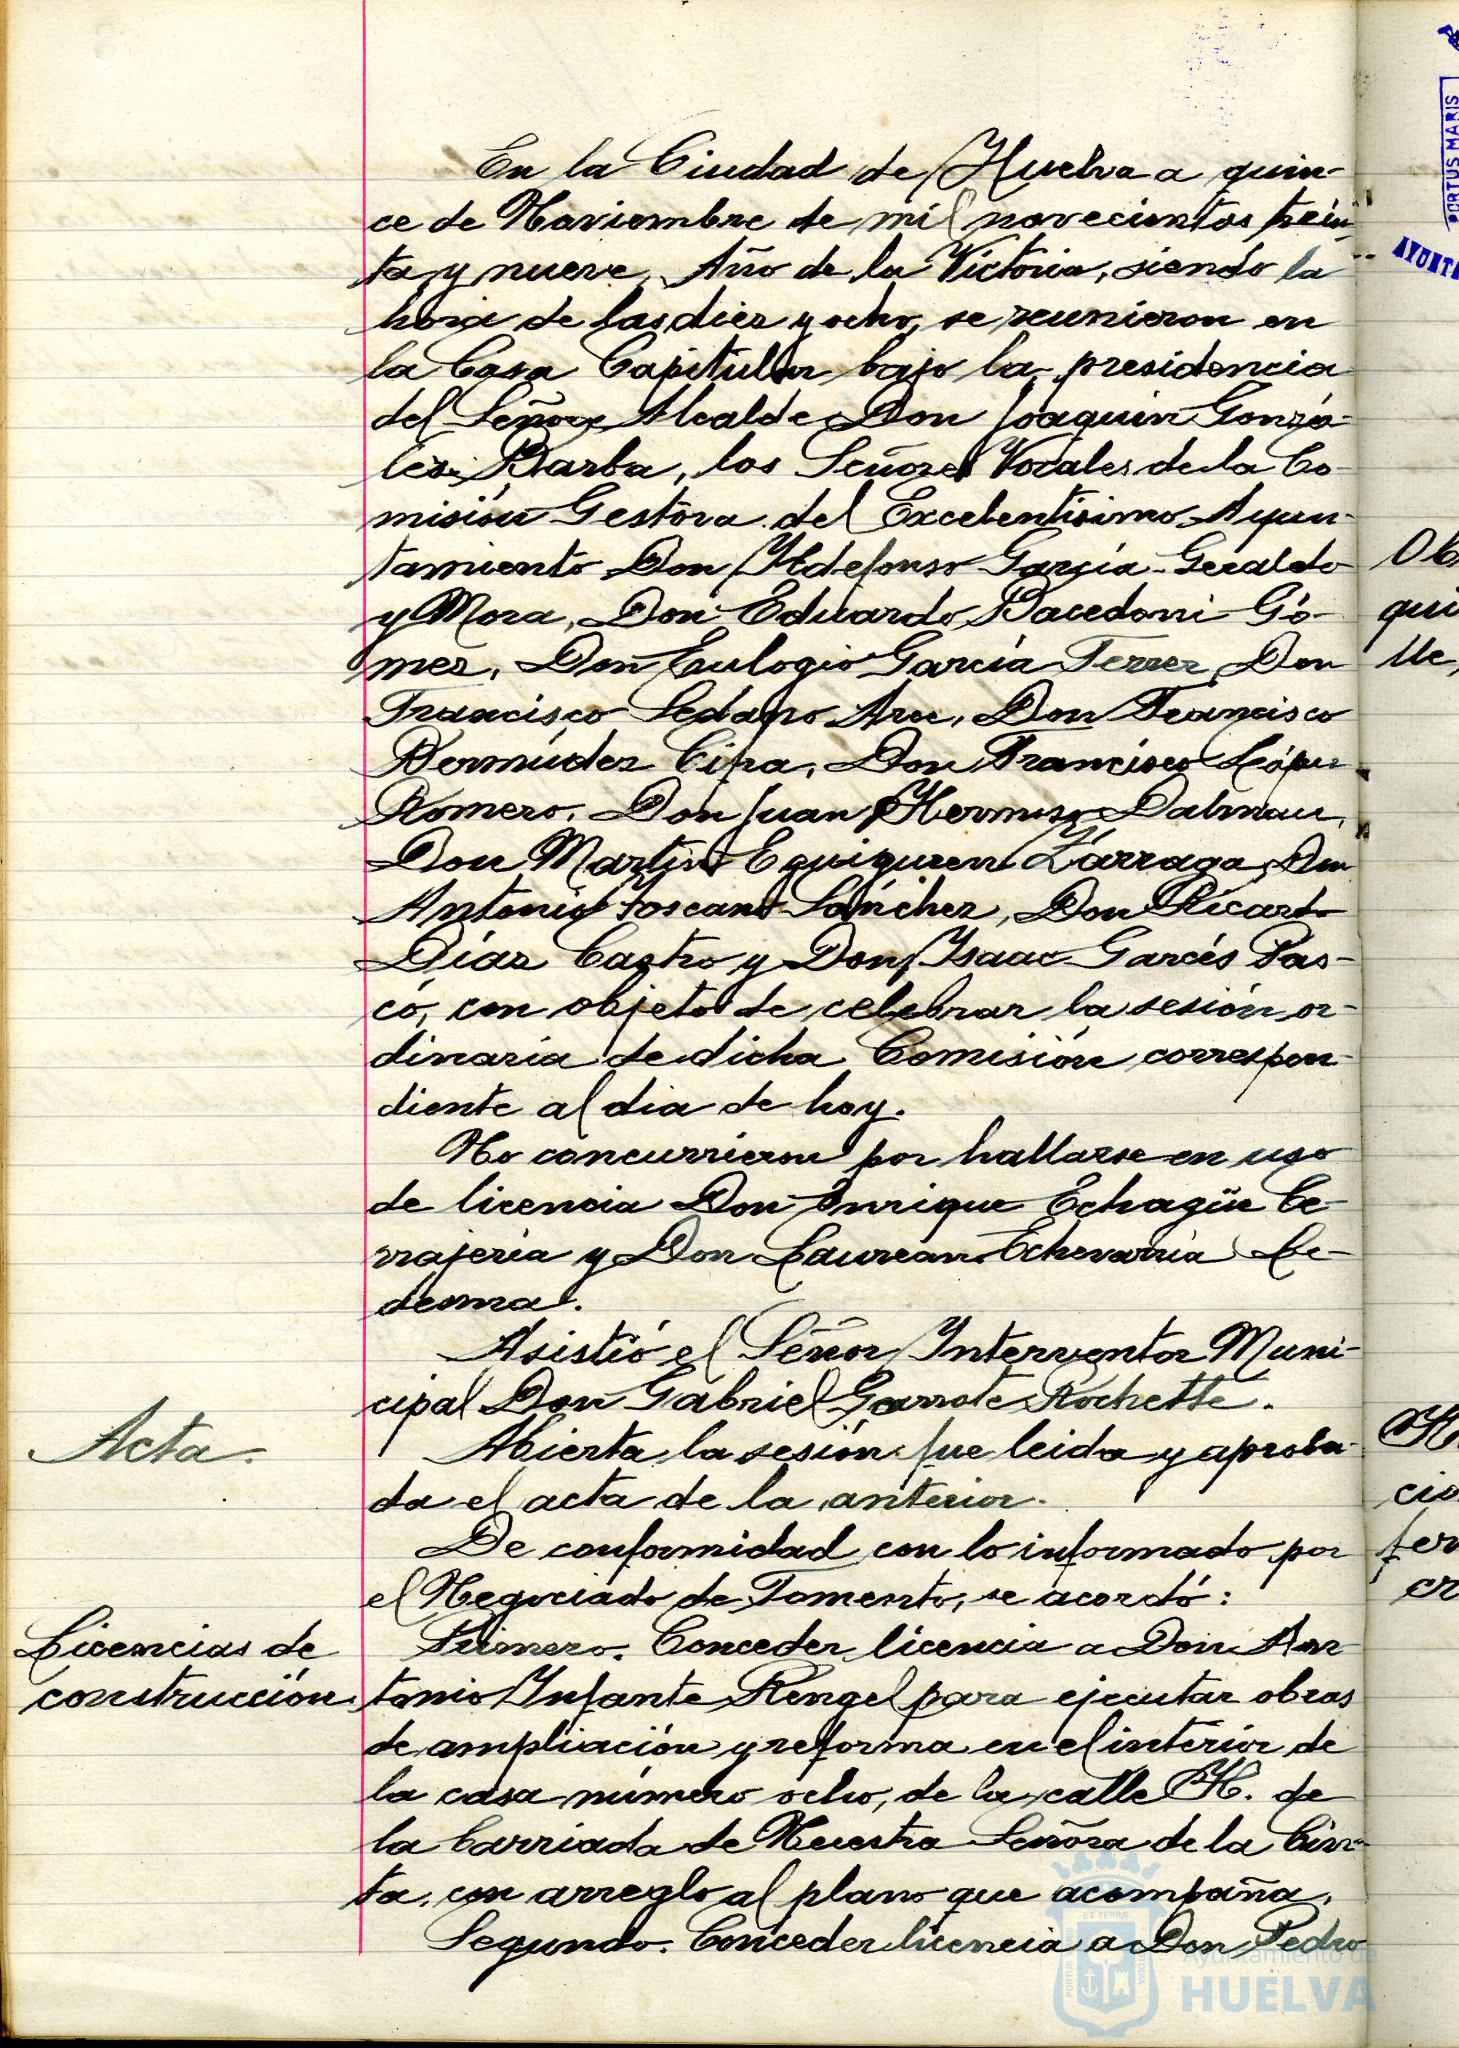 En la Ciudad de Huelva a quin-
ce de Noviembre de mil novecientos trein
ta y nueve, Año de la Victoria, siendo la
hora de las diez y ocho, se reunieron en
la Casa Capitular bajo la presidencia
del Señor Alcalde Don Joaquín Gonzá-
lez Barba, los Señores Vocales de la Co-
misión Gestora del Excelentísimo Ayun-
tamiento Don Ildefonso García-Geraldo
y Mora, Don Eduardo Bacedoni Gó-
mez, Don Eulogio García Ferrer, Don
Francisco Sedano Arce, Don Francisco
Bermúdez Cipa, Don Francisco López
Romero, Don Juan Hermoso Dalmau,
Don Martín Eguiguren Zárraga, Don
Antonio Toscano Sánchez, Don Ricardo
Díaz Castro y Don Isaac Garcés Pas-
có, con objeto de celebrar la sesión or-
dinaria de dicha Comisión correspon-
diente al dia de hoy.
No concurrieron por hallarse en uso
de licencia Don Enrique Echagüe Ce-
rrajería y Don Laureano Echevarría Le-
desma.
Asistió el Señor Interventor Muni-
cipal Don Gabriel Garrote Rochette.
Acta.
Abierta la sesión fue leida y aproba-
da el acta de la anterior.
De conformidad con lo informado por
el Negociado de Fomento, se acordó:
Licencias de
construcción.
Primero. Conceder licencia a Don An
tonio Infante Rengel para ejecutar obras
de ampliación y reforma en el interior de
la casa número ocho, de la calle H. de
la barriada de Nuestra Señora de la Cin-
ta, con arreglo al plano que acompaña.
Segundo. Conceder licencia a Don Pedro
PORTUS MARIS
AYUNT
qui
lle,
cio
fer
cr
Ayuntamiento de
HUELVA